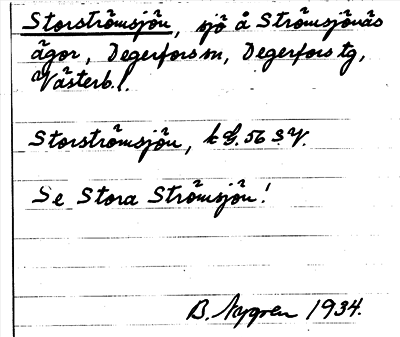 Storströmsjön, sjö å Strömsjönäs
ägor, Degerfors sn, Degerfors tg,
Västerb.l.
Storströmsjön, k G. 56 SV.
Se Stora Strömsjön!
B. Nygren 1934.